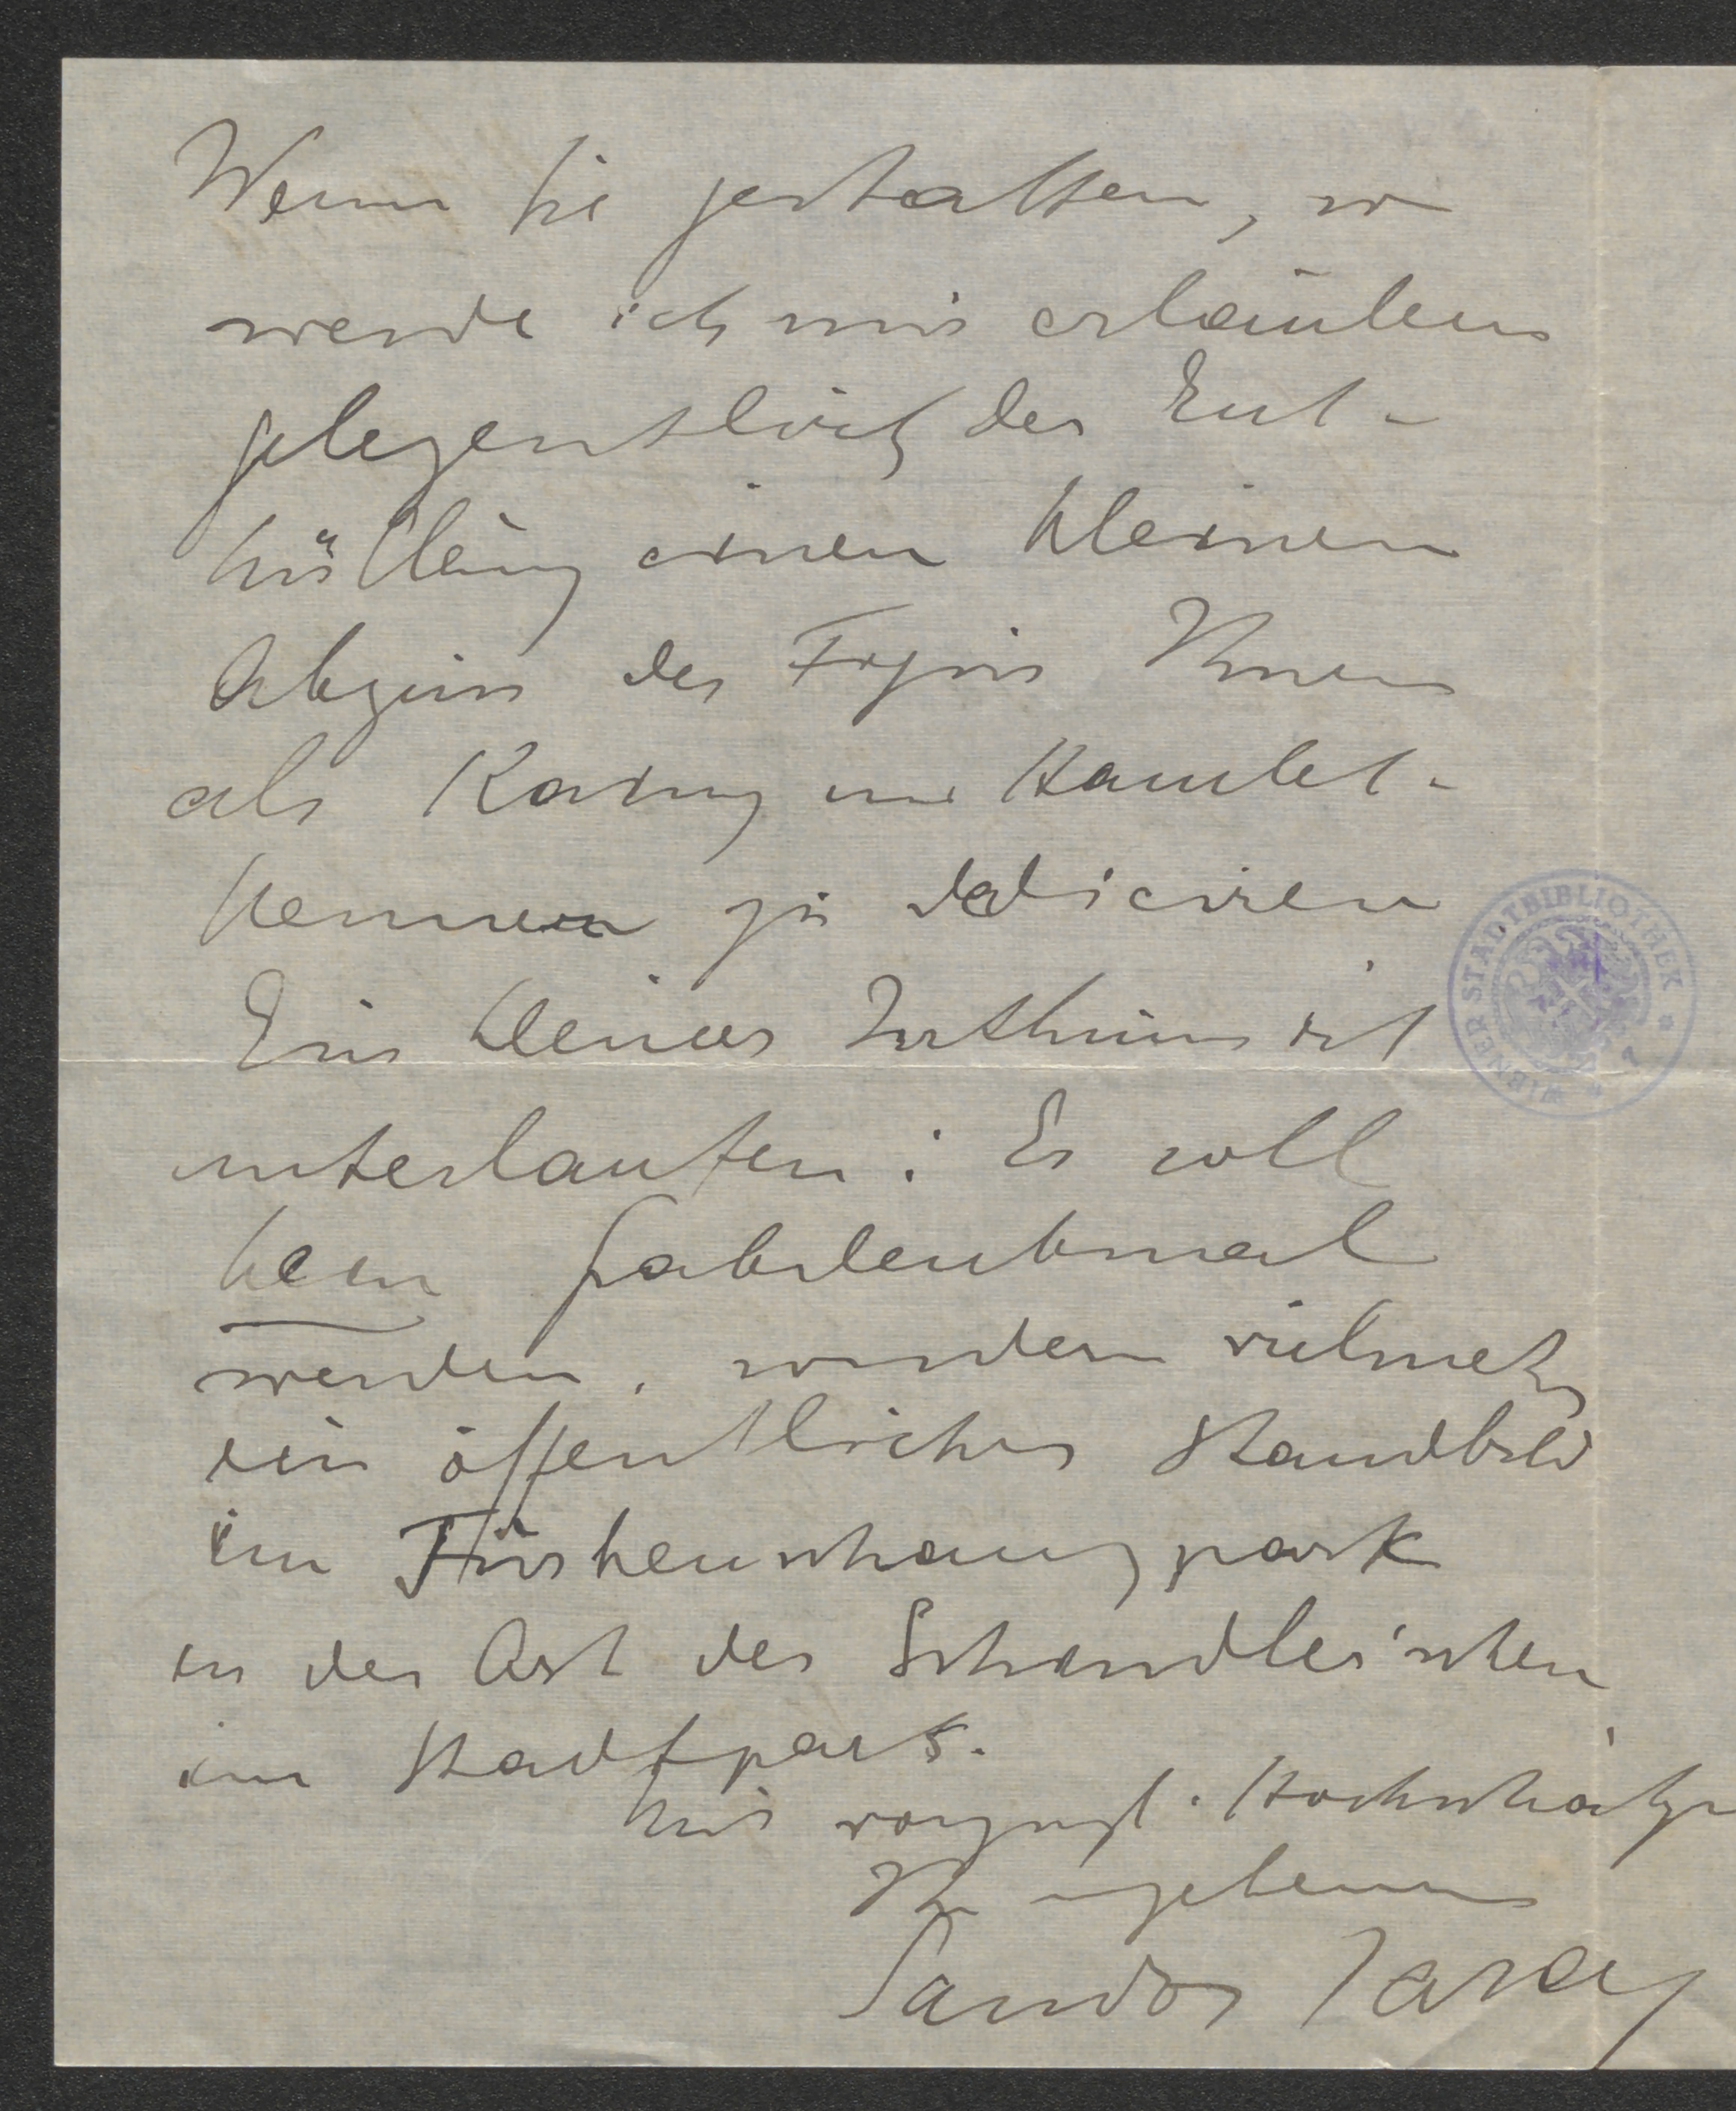 Wenn Sie gestatten, so
werde ich mir erlauben
gelegentlich der Ent-
hüllung einen kleinen
Abguss der Figur Ihnen
als Kainz und Hamlet-
kenner zu dedicieren
Ein kleiner Irrthum ist
unterlaufen: Es soll
kein Grabdenkmal
werden, sondern vielmehr
ein öffentliches Standbild
im Türkenschanzpark
in der Art des Schindler'schen
im Stadtpark.
Mit vorzügl. Hochschätzg
Ihr ergebener
Sandor Jaray
WIENER STADTBIBLIOTHEK